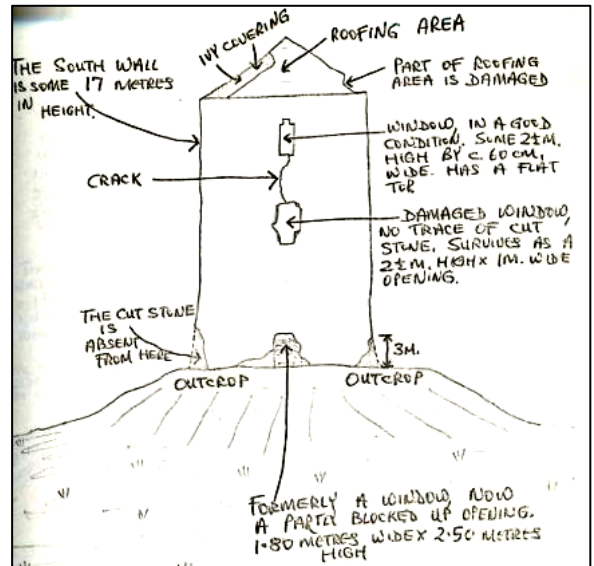 IVY COVERING
ROOFING AREA
THE SOUTH WALL
IS SOME 17 METRES
IN HEIGHT.
PART OF ROOFING
AREA IS DAMAGED
WINDOW, IN A GOOD
CONDITION. SOME 2½M.
HIGH BY C. 60 CM,
WIDE. HAS A FLAT
TOP
CRACK
DAMAGED WINDOW,
NO TRACE OF CUT
STONE. SURVIVES AS A
2½M. HIGH X 1M. WIDE
OPENING.
THE CUT STONE
IS
ABSENT
FROM HERE
3M.
OUTCROP
OUTCROP
FORMERLY A WINDOW, NOW
A PARTLY BLOCKED UP OPENING.
1.80 METRES WIDE X 2.50 METRES
HIGH